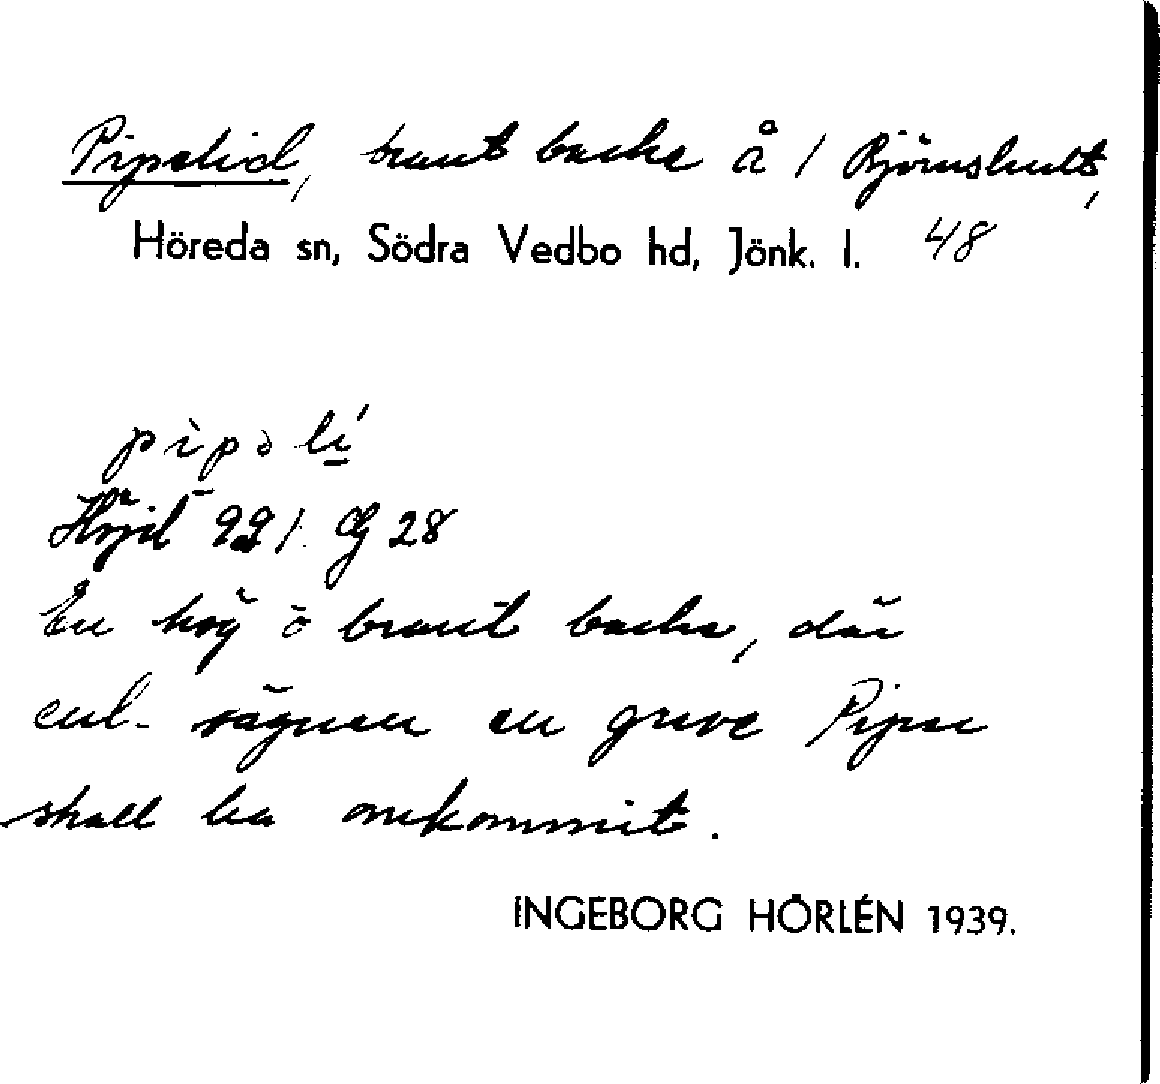 Pipelid, brant backe å 1 Björnshult,
Höreda sn, Södra Vedbo hd, Jönk. l. 48
pìpə lí
Höjd 221.
En hög o brant backe, där
enl. sägnen en greve Piper
skall ha omkommit.
INGEBORG HÖRLÉN 1939.